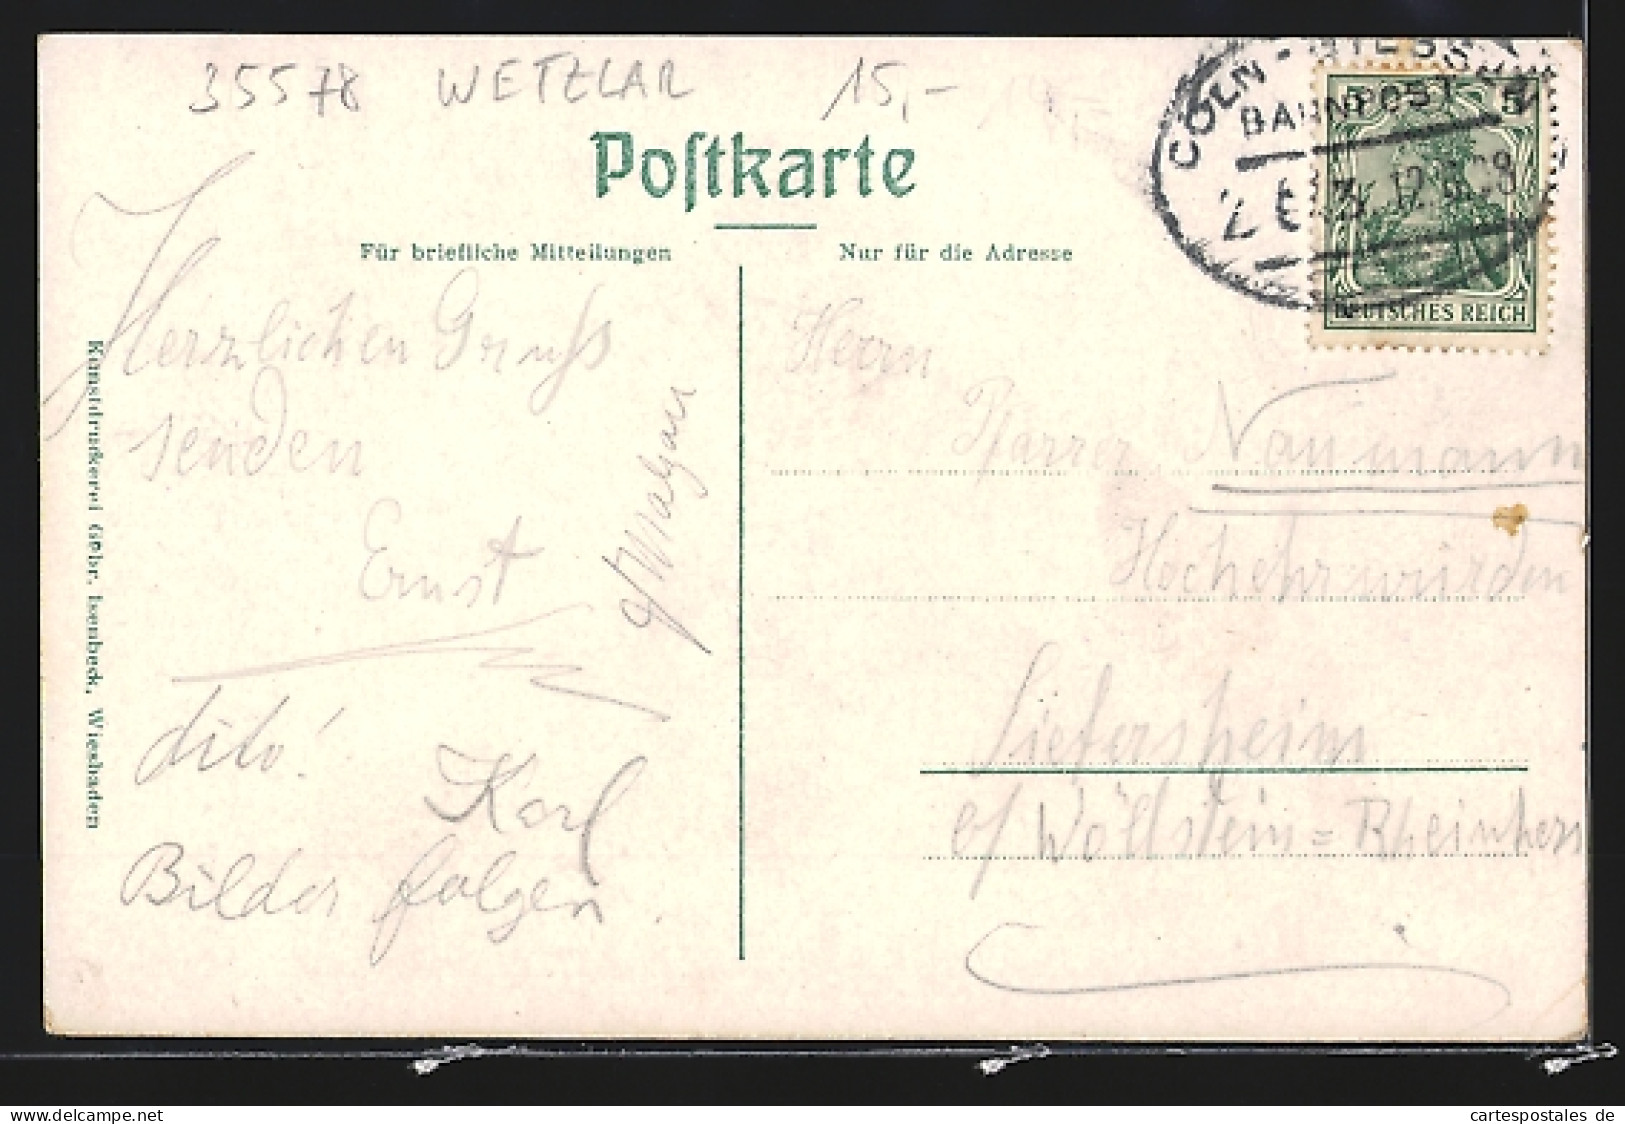 35578 WETZLAR 15,-
Postkarte
Für briefliche Mitteilungen
Nur für die Adresse
CÖLN - GIESSEN
BAHNPOST
5 5
DEUTSCHES REICH
Herzlichen Gruss
senden
Ernst
dito!
Karl
Bilder folgen.
Herrn
Pfarrer Naumann
Hochehrwürden
Siefersheim
b/ Wöllstein = Rheinhess
Kunstdruckerei Gebr. Isenbeck, Wiesbaden
cartespostales de